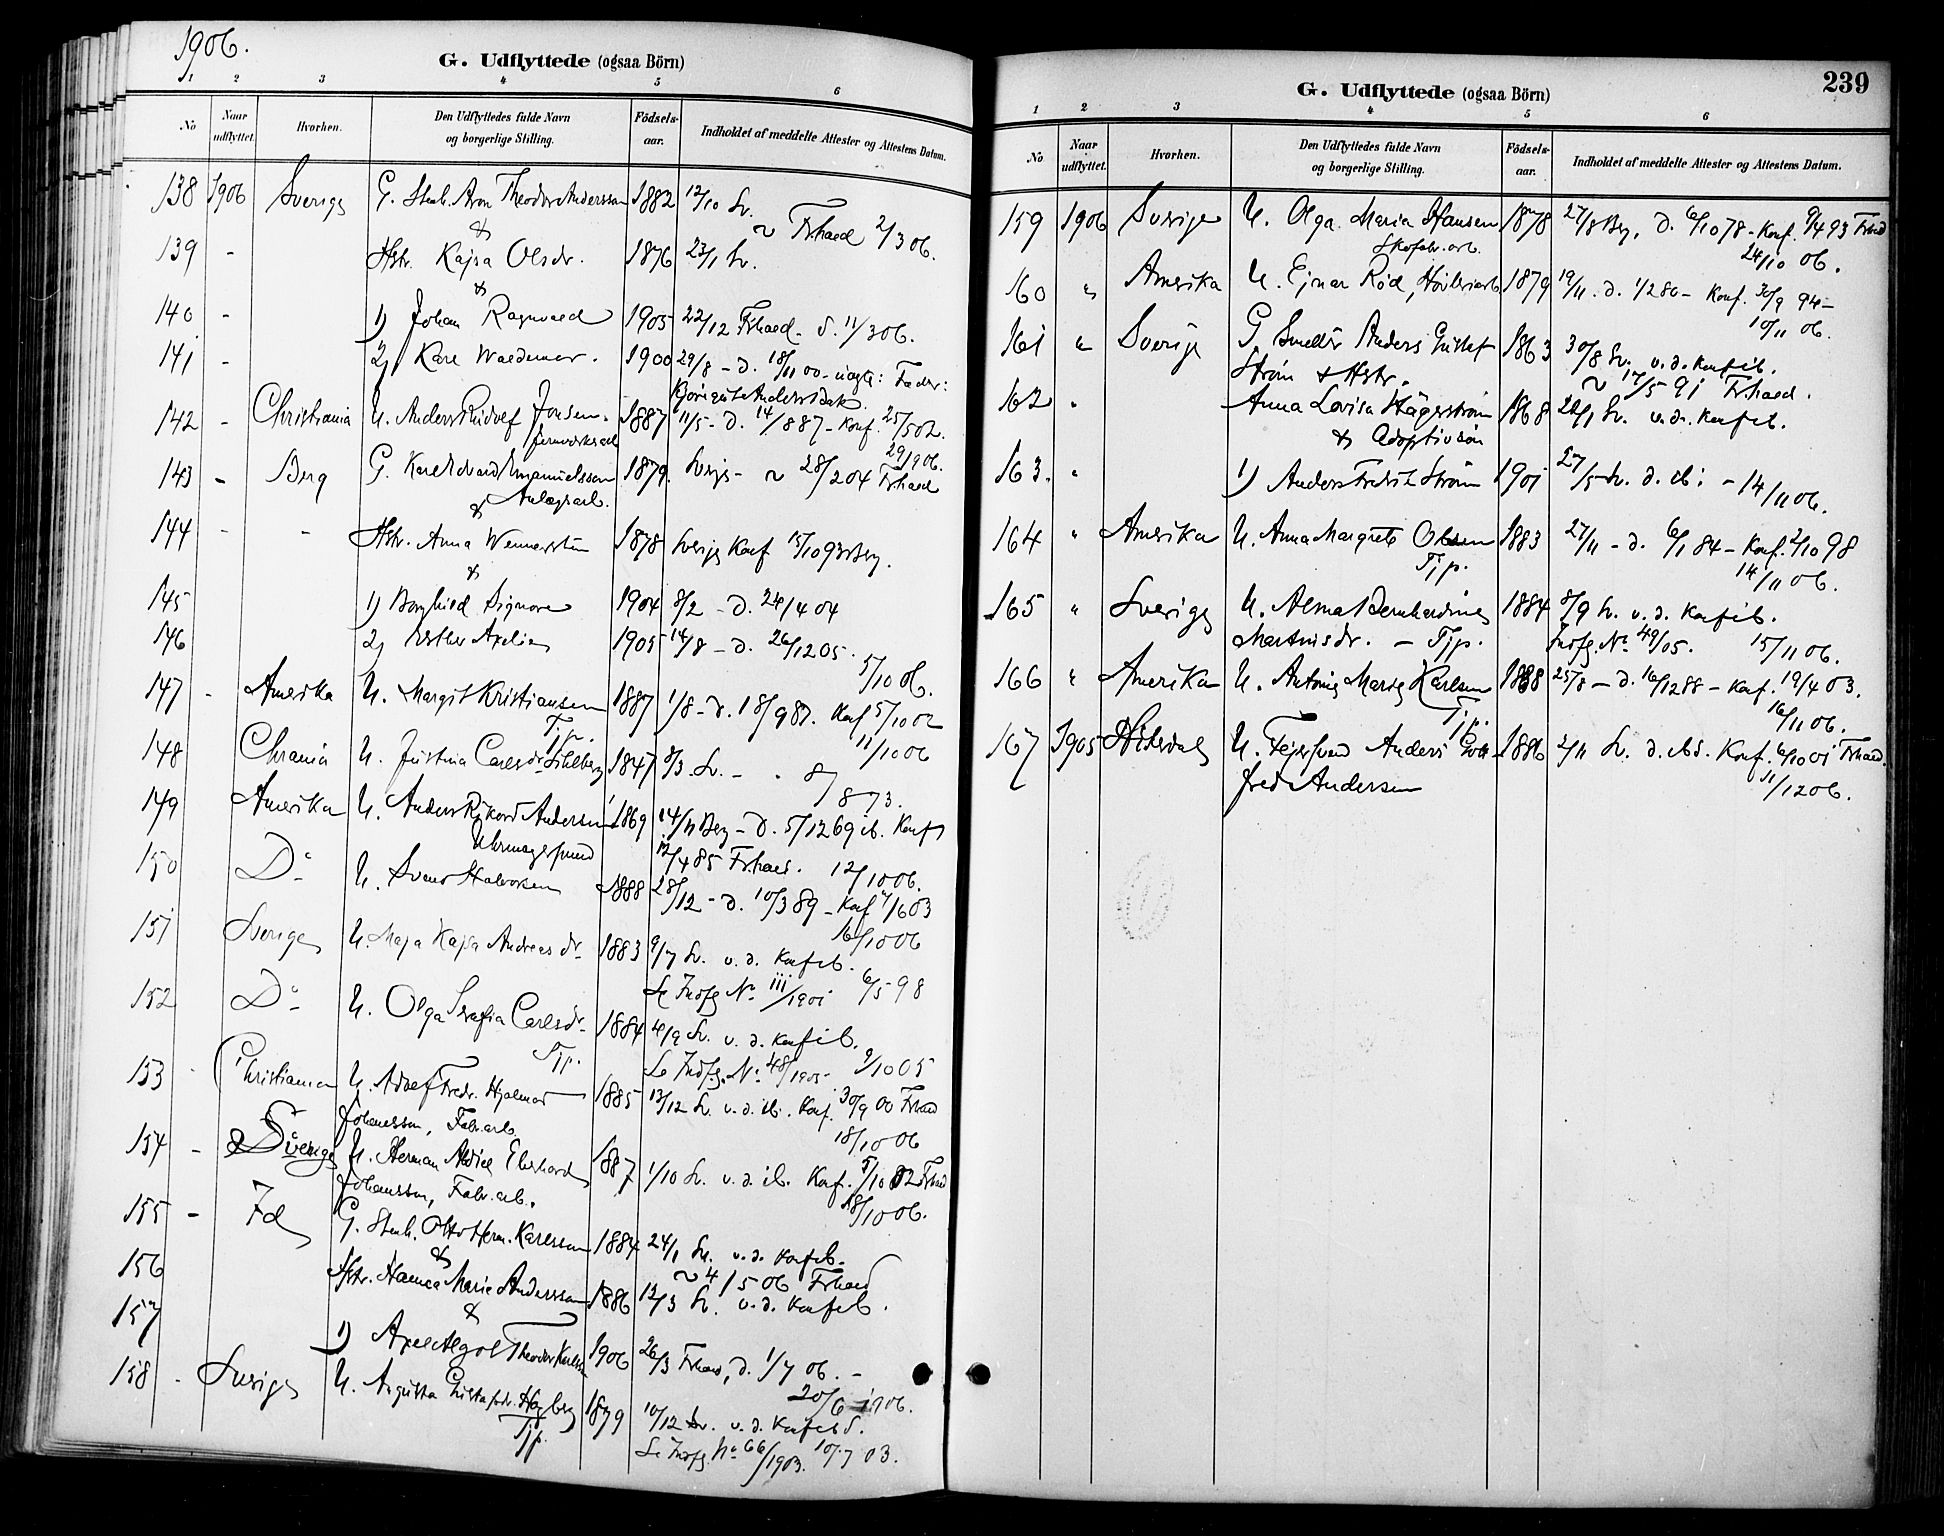 1906.
G. Udflyttede (ogsaa Börn)
1 2 3 4 5 6
No
Naar udflyttet.
Hvorhen.
Den Udflyttedes fulde Navn og borgerlige Stilling.
Födsels-aar.
Indholdet af meddelte Attester og Attestens Datum.
138 1906 Sverige G. Stenh. Aron Theodor Andersson 1882 12/10 Sv.
& ~ Frhald 2/3 06.
139 - Hstr. Kajsa Olsdr. 1876 23/1 Sv.
&
140 - 1) Johan Ragnvald 1905 22/12 Frhald - d. 11/3 06.
141 - 2) Karl Waldemar. 1900 29/8 - d. 18/11 00 - uægte: Fader:
142 - Christiania U. Anders Rudolf Jonsen 1887 11/5 - d. 14/8 87 - Konf. 25/5 02.
29/9 06.
143 - Berg G. Karl Edvard Emanuelsson 1879 Sverige - ~ 28/2 04 Frhald
Anlægsarb.
&
144 - - Hstr. Anna Wennerström 1878 Sverige Konf 15/10 93 Berg.
&
145 1) Borghild Signora 1904 8/2 - d. 24/4 04
146 2) Esther Axelia 1905 14/8 - d. 26/12 05.
5/10 06.
147 - Amerika U. Margit Kristiansen 1887 1/8 - d. 18/9 87. Konf 5/10 02
Tjp. 11/10 06
148 Chrania U. Justina Carlsdr. 1847 8/3 Sv. -
8/8 73.
149 Amerika U. Anders Rikard Andersen 1869 14/11 Berg - d. 5/12 69 ib. Konf
Uhrmagersvend 12/4 85 Frhald. 12/10 06.
150 Do U. Svend Halvorsen 1888 28/12 - d. 10/3 89 - Konf /6 03
16/10 06
151 Sverige U. Maja Kajsa Andreasdr. 1883 9/7 Sv. v. d. Konf ib.
Se Indfl. No 111/1901 6/5 98
152 Do U. Olga Serafia Carlsdr. 1884 4/9 Sv. v. d. Konf ib.
Tjp. Se Indfl. No 48/1905. 9/10 05
153 - Christiania U. Adolf Fredr. Hjalmar 1885 13/12 Sv. v. d. ib. Konf. 30/9 00 Frhald
Johansson, Fabr.arb. 18/10 06
154 - Sverige U. Herman Eberhard 1887 1/10 Sv. v. d. ib. Konf. 5/10 02 Frhald
Johansson, Fabr.arb. 18/10 06.
155 - Id G. Stenh. Otto Herm. Karlsson 1884 24/1 Sv. v. d. Konf ib.
& ~ 4/5 06 Frhald
156 Hstr. Hanna Marie Andersson 1886 12/3 Sv. v. d. Konf ib.
&
157 1) Axel Algot Theodor Karlsson 1906 26/3 Frhald, d. 1/7 06. -
20/6 1906.
158 - Sverige U. Augusta Gustafsdr. Hagberg 1879 10/12 Sv. v. d. Konf ib d.
Tjp. Se Indfl. No 66/1903. 10/7 03.
239
G. Udflyttede (ogsaa Börn)
1 2 3 4 5 6
No
Naar udflyttet.
Hvorhen.
Den Udflyttedes fulde Navn og borgerlige Stilling.
Födsels-aar.
Indholdet af meddelte Attester og Attestens Datum.
159 1906 Sverige U. Olga Maria Hansen 1878 27/8 Berg, d. 6/10 78 - Konf. 9/4 93 Frhld
Skofabr.arb. 24/10 06.
160 " Amerika U. Ejnar Röd, Høvleriarb 1879 19/11. d. 1/2 80 - Konf. 30/9 94 -
10/11 06.
161 " Sverige G Smed Anders Gustaf 1863 30/8 Sv. v. d. Konf ib.
Ström & Hstr. ~ 17/5 91 Frhald.
162 " Anna Lovisa Hägerström 1868 22/1 Sv. v. d. Konf ib.
& Adoptivsön
163. " 1) Anders Fredrik Ström 1901 27/5 Sv. d. ib: - 14/11 06.
164 " Amerika U. Anna Margrete Olsen 1883 27/11 - d. 6/1 84 - Konf. 2/10 98
Tjp. 14/11 06.
165 " Sverige U. Alma Bernhardina 1884 8/9 Sv. v. d. Konf ib.
Martinsdr. - Tjp. Indfl. No 49/05. 15/11 06.
166 " Amerika U. Antonie Marie Karlsen 1888 25/8 - d. 16/12 88 - Konf. 19/4 03.
Tjp. 16/11 06.
167 1905 Hitterdal U. Tejelsvend Anders Gott- 1886 2/11 Sv. d. ibd. Konf. 6/10 01 Frhald.
fred Andersen 11/12 06.